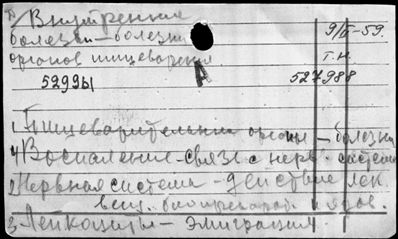 Внутренние
болезни – болезни 9/II-59.
органов пищеварения т.н.
5299ы 527988
1. Пищеварительные органы – болезни
4) Воспаление – связь с нерв. системой
2. Нервная система – действие лек.
вещ. и ядов.
3. Лейкоциты – эмиграция